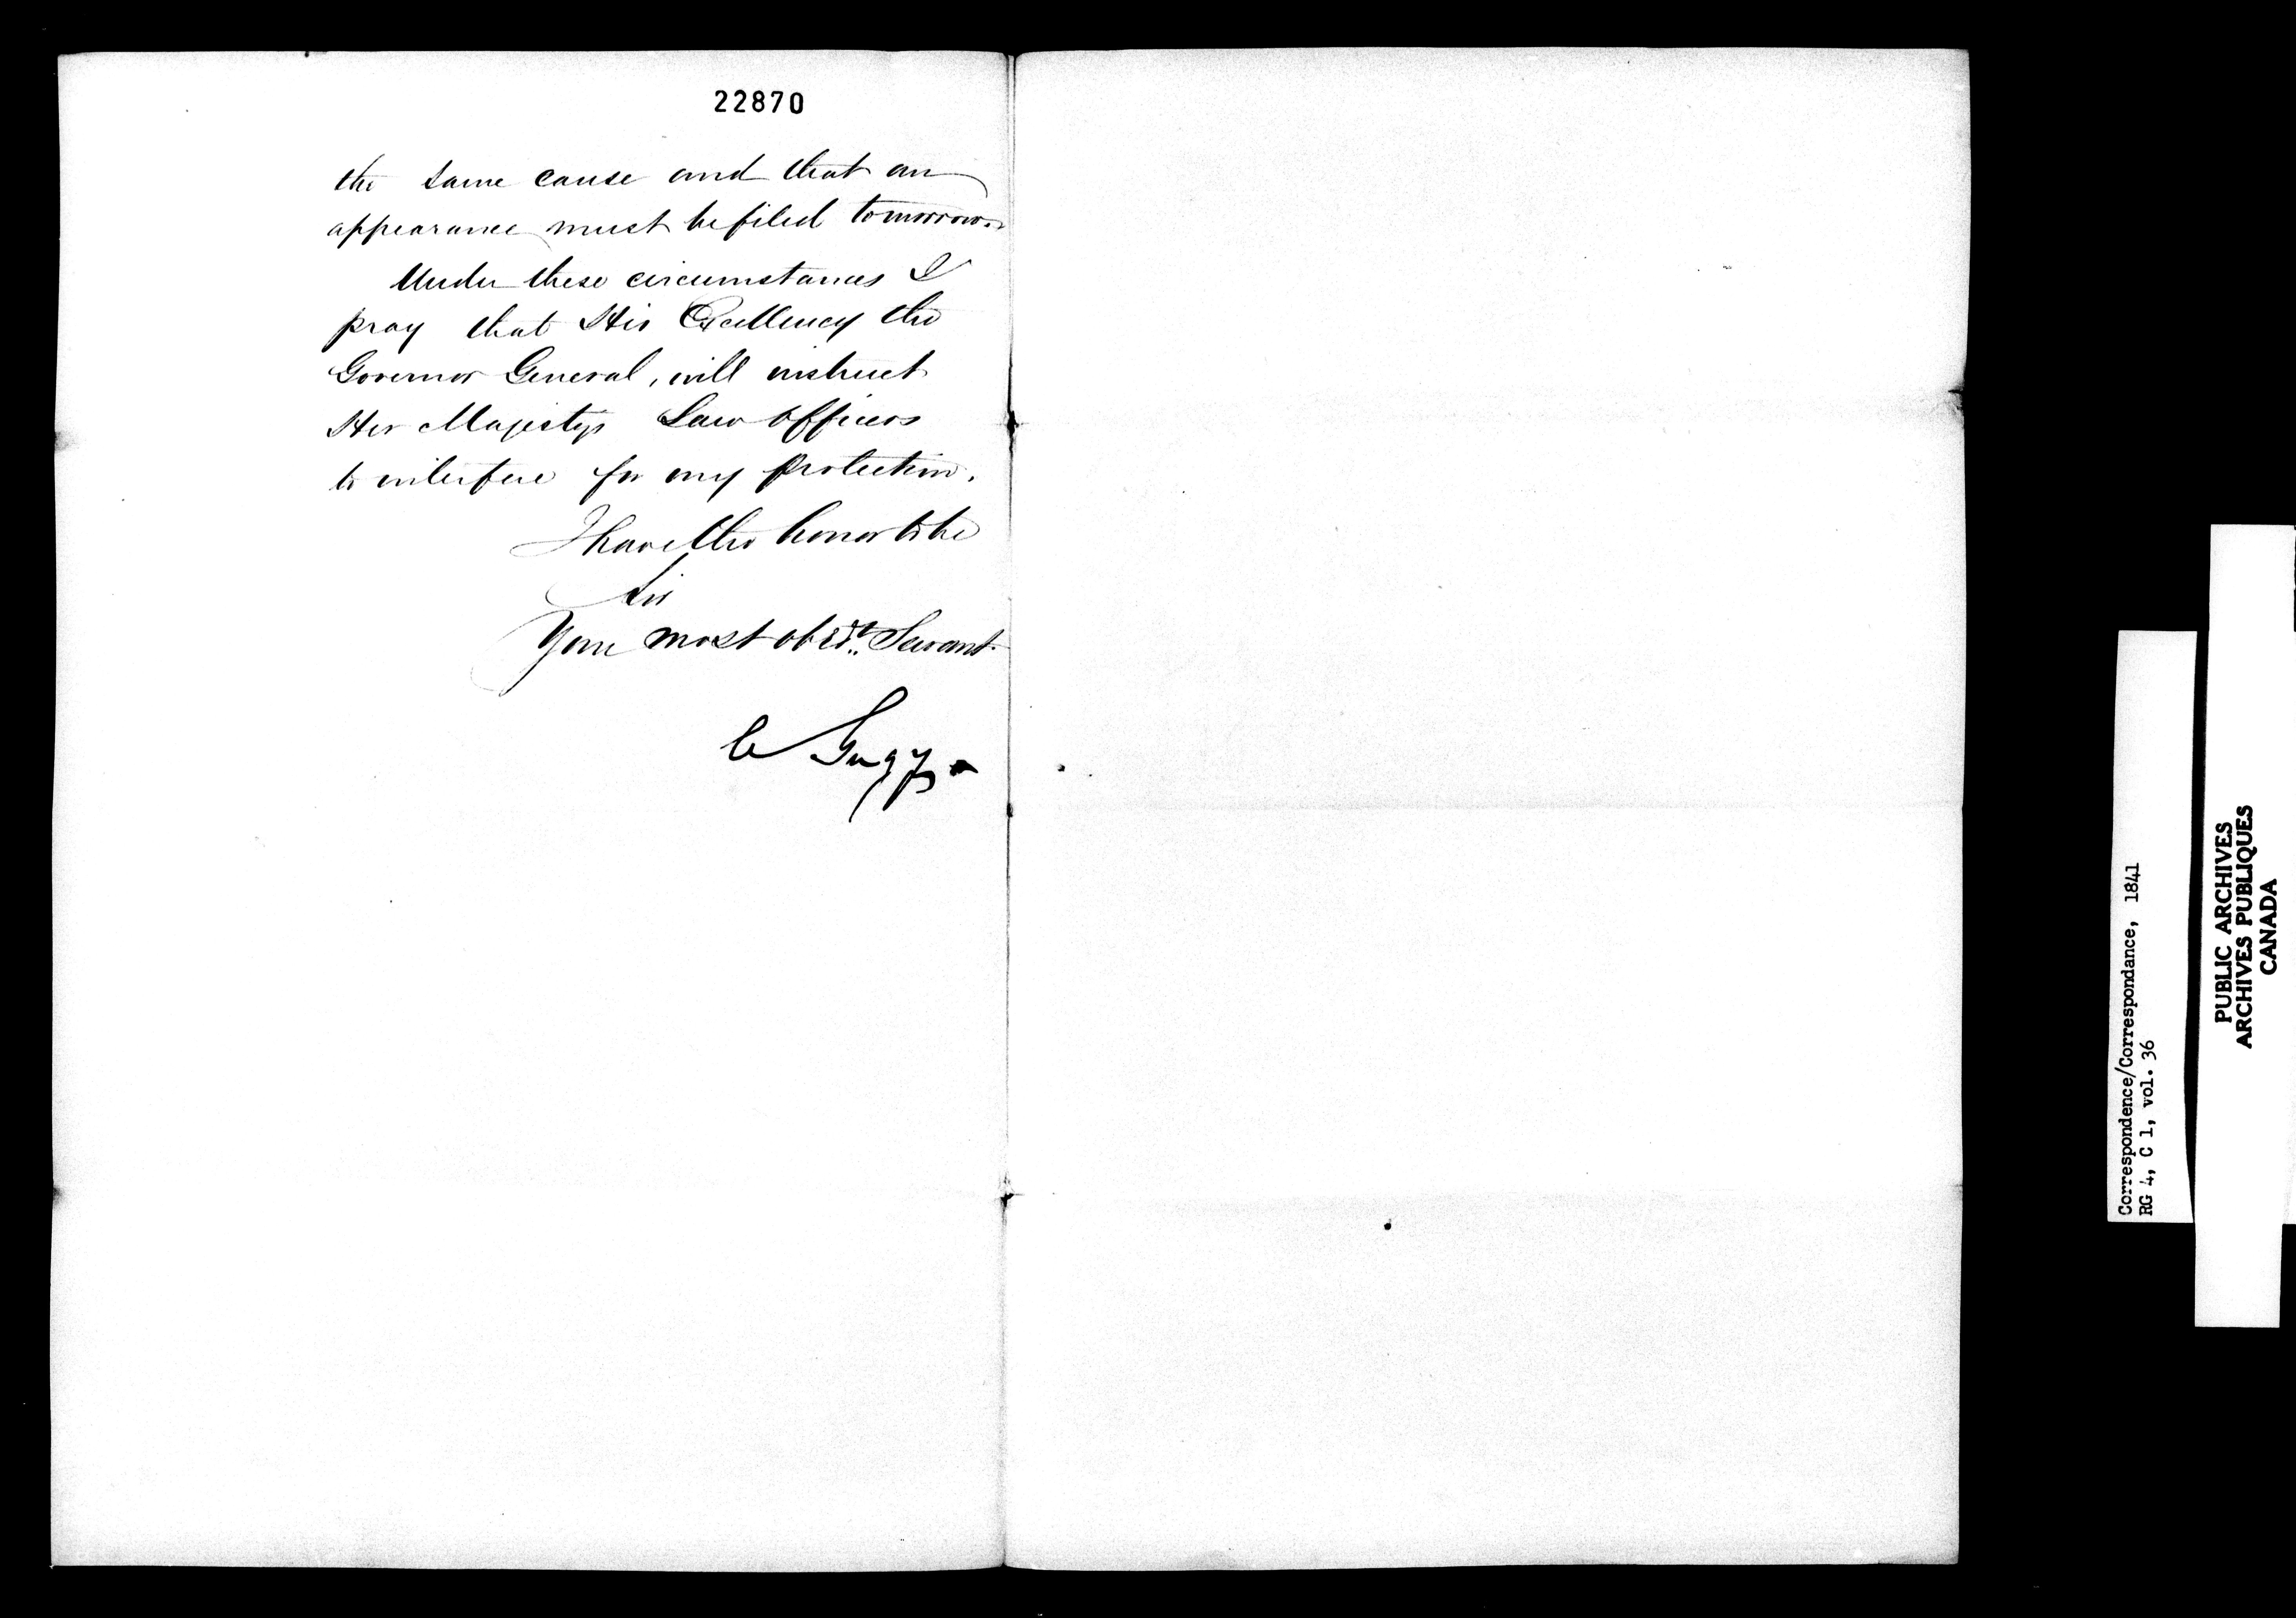 22870
the same cause and that an
appearance must be filed tomorrow.
Under these circumstances I
pray that His Excellency the
Governor General, will instruct
Her Majestys Law officers
to interfere for my protection.
I have the honor to be
Sir
Your most obedt. Servant.
C Gugy
Correspondence/Correspondance, 1841
RG 4, C 1, vol. 36
PUBLIC ARCHIVES
ARCHIVES PUBLIQUES
CANADA